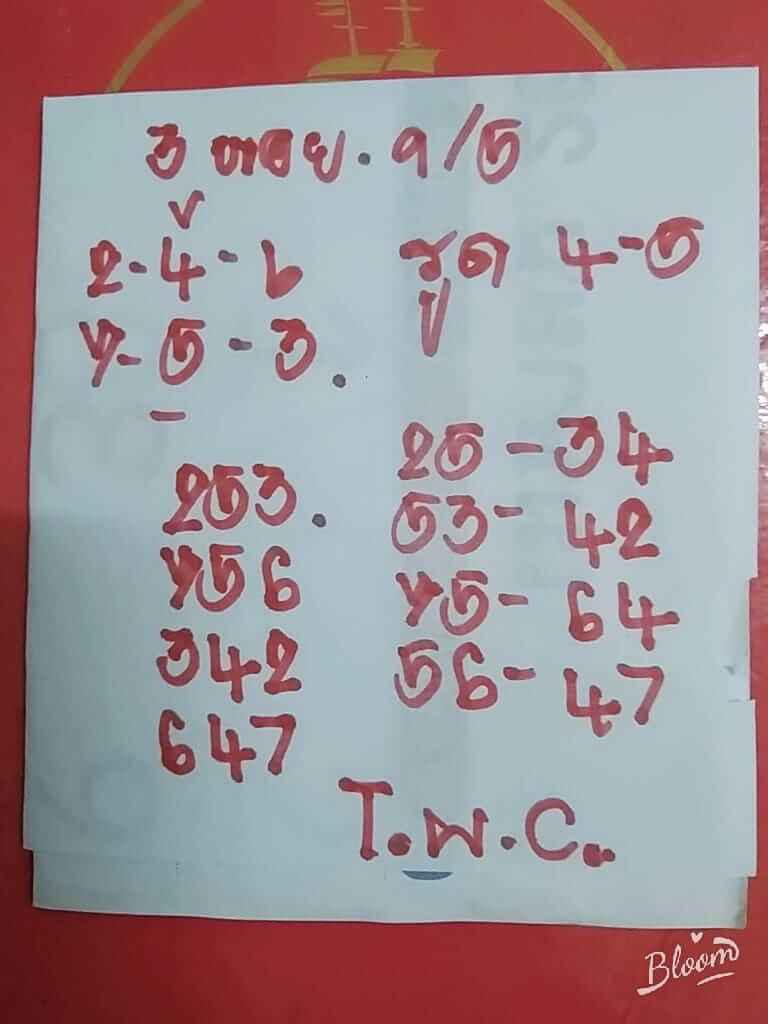 3 . 9/5
v
2-4-6
7-5-3.
รูด 4-5
253.
756
342
647
25-34
53-42
75-64
56-47
T.W.C.
Bloom